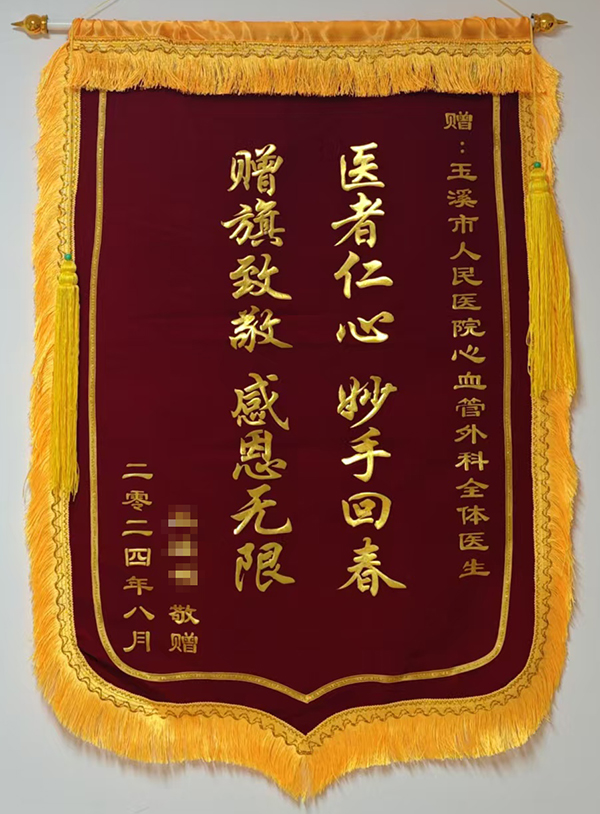 赠：玉溪市人民医院心血管外科全体医生
医者仁心 妙手回春
赠旗致敬 感恩无限
敬赠
二零二四年八月